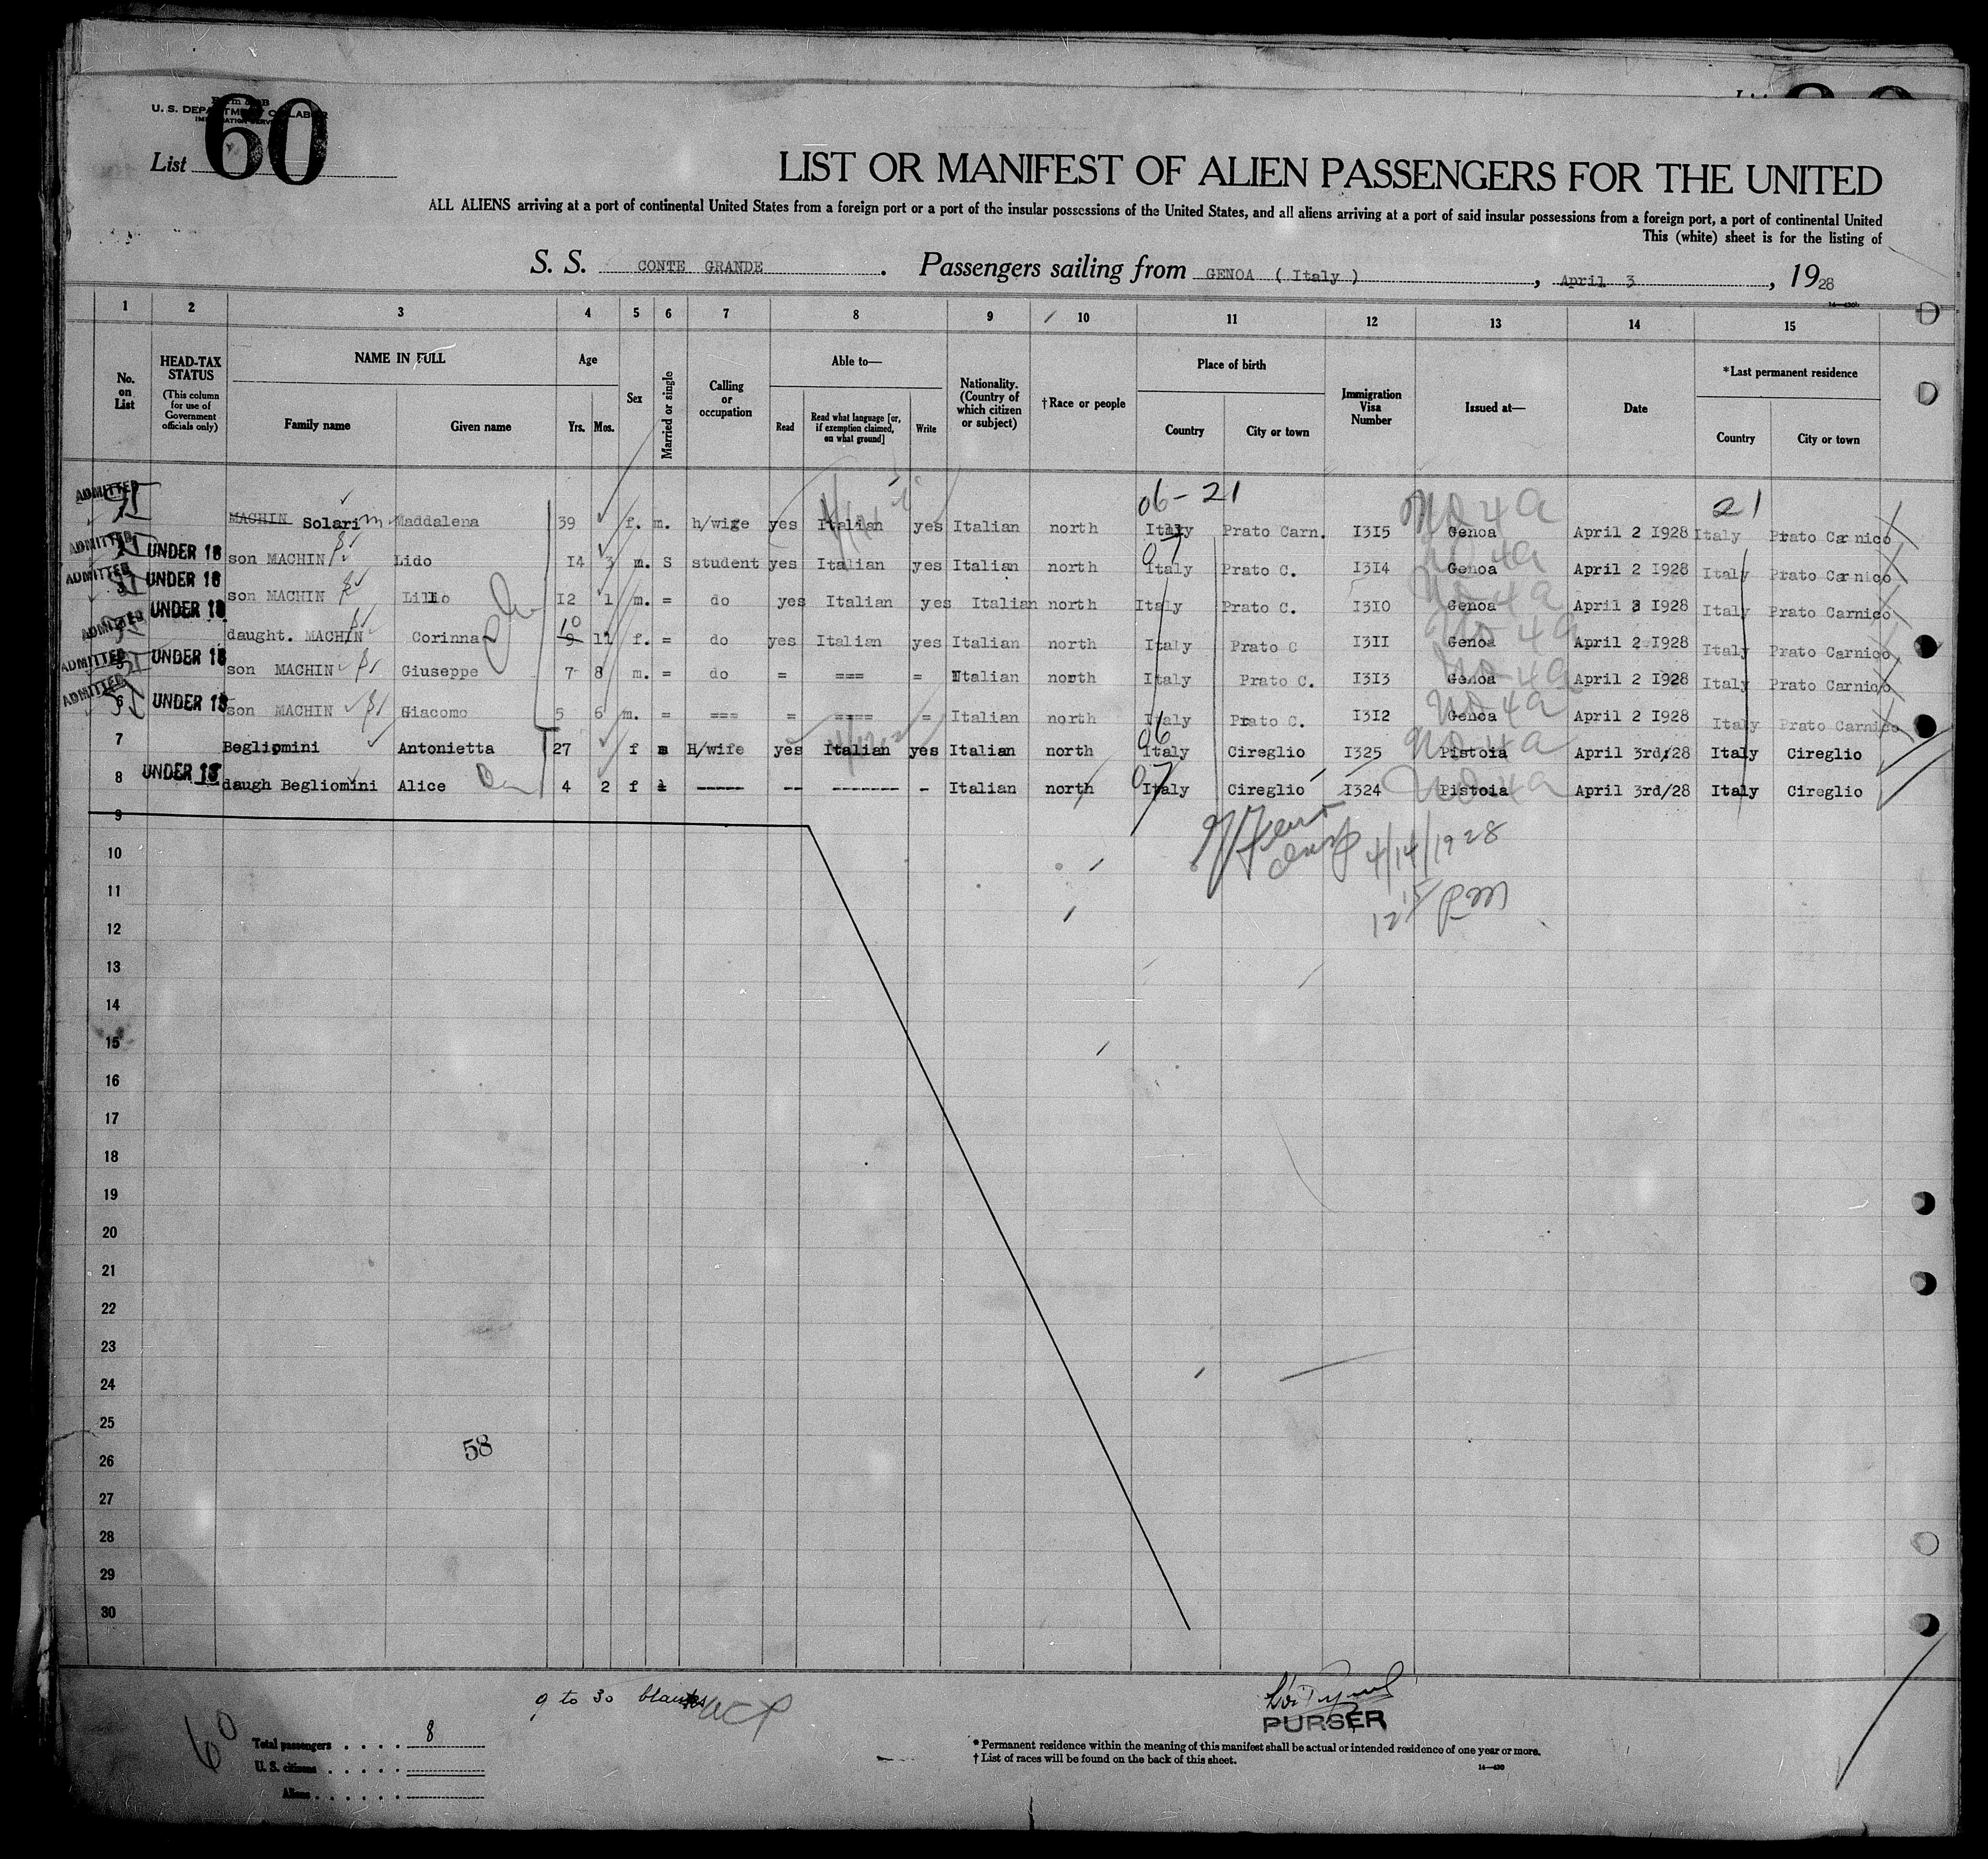 Form 500 B
U. S. DEPARTMENT OF LABOR
IMMIGRATION SERVICE
List 60
LIST OR MANIFEST OF ALIEN PASSENGERS FOR THE UNITED
ALL ALIENS arriving at a port of continental United States from a foreign port or a port of the insular possessions of the United States, and all aliens arriving at a port of said insular possessions from a foreign port, a port of continental United
This (white) sheet is for the listing of
S. S. CONTE GRANDE . Passengers sailing from GENOA ( Italy ) , April 3 , 1928
1 2 3 4 5 6 7 8 9 10 11 12 13 14 15
No. on List HEAD-TAX STATUS (This column for use of Government officials only) NAME IN FULL Family name Given name Age Yrs. Mos. Sex Married or single Calling or occupation Able to— Read Read what language [or, if exemption claimed, on what ground] Write Nationality. (Country of which citizen or subject) †Race or people Place of birth Country City or town Immigration Visa Number Issued at— Date *Last permanent residence Country City or town
06-21 21
ADMITTED MACHIN Solari Maddalena 39 f. m. h/wife yes Italian yes Italian north Italy Prato Carn. I315 Genoa April 2 I928 Italy Prato Carnico
ADMITTED UNDER 16 son MACHIN Lido I4 3 m. S student yes Italian yes Italian north Italy Prato C. I314 Genoa April 2 I928 Italy Prato Carnico
ADMITTED UNDER 16 son MACHIN Lillio I2 1 m. = do yes Italian yes Italian north Italy Prato C. I310 Genoa April 2 I928 Italy Prato Carnico
ADMITTED UNDER 16 daught. MACHIN Corinna 9 10 11 f. = do yes Italian yes Italian north Italy Prato C I311 Genoa April 2 I928 Italy Prato Carnico
ADMITTED 5 UNDER 16 son MACHIN Giuseppe 7 8 m. = do = === = Italian north Italy Prato C. I313 Genoa April 2 I928 Italy Prato Carnico
ADMITTED 6 UNDER 16 son MACHIN Giacomo 5 6 m. = === = ==== = Italian north Italy Prato C. I312 Genoa April 2 I928 Italy Prato Carnico
7 Begliomini Antonietta 27 f m H/wife yes Italian yes Italian north Italy Cireglio I325 Pistoia April 3rd/28 Italy Cireglio
8 UNDER 16 daugh Begliomini Alice 4 2 f ----- -- ------- - Italian north Italy Cireglio I324 Pistoia April 3rd/28 Italy Cireglio
9
4/14/1928
10
11
12 15 PM
12
13
14
15
16
17
18
19
20
21
22
23
24
25
58
26
27
28
29
30
9 to 30 blanks
PURSER
60
Total passengers . . . . 8
U. S. citizens . . . . .
Aliens . . . . . .
* Permanent residence within the meaning of this manifest shall be actual or intended residence of one year or more.
† List of races will be found on the back of this sheet.
14—430